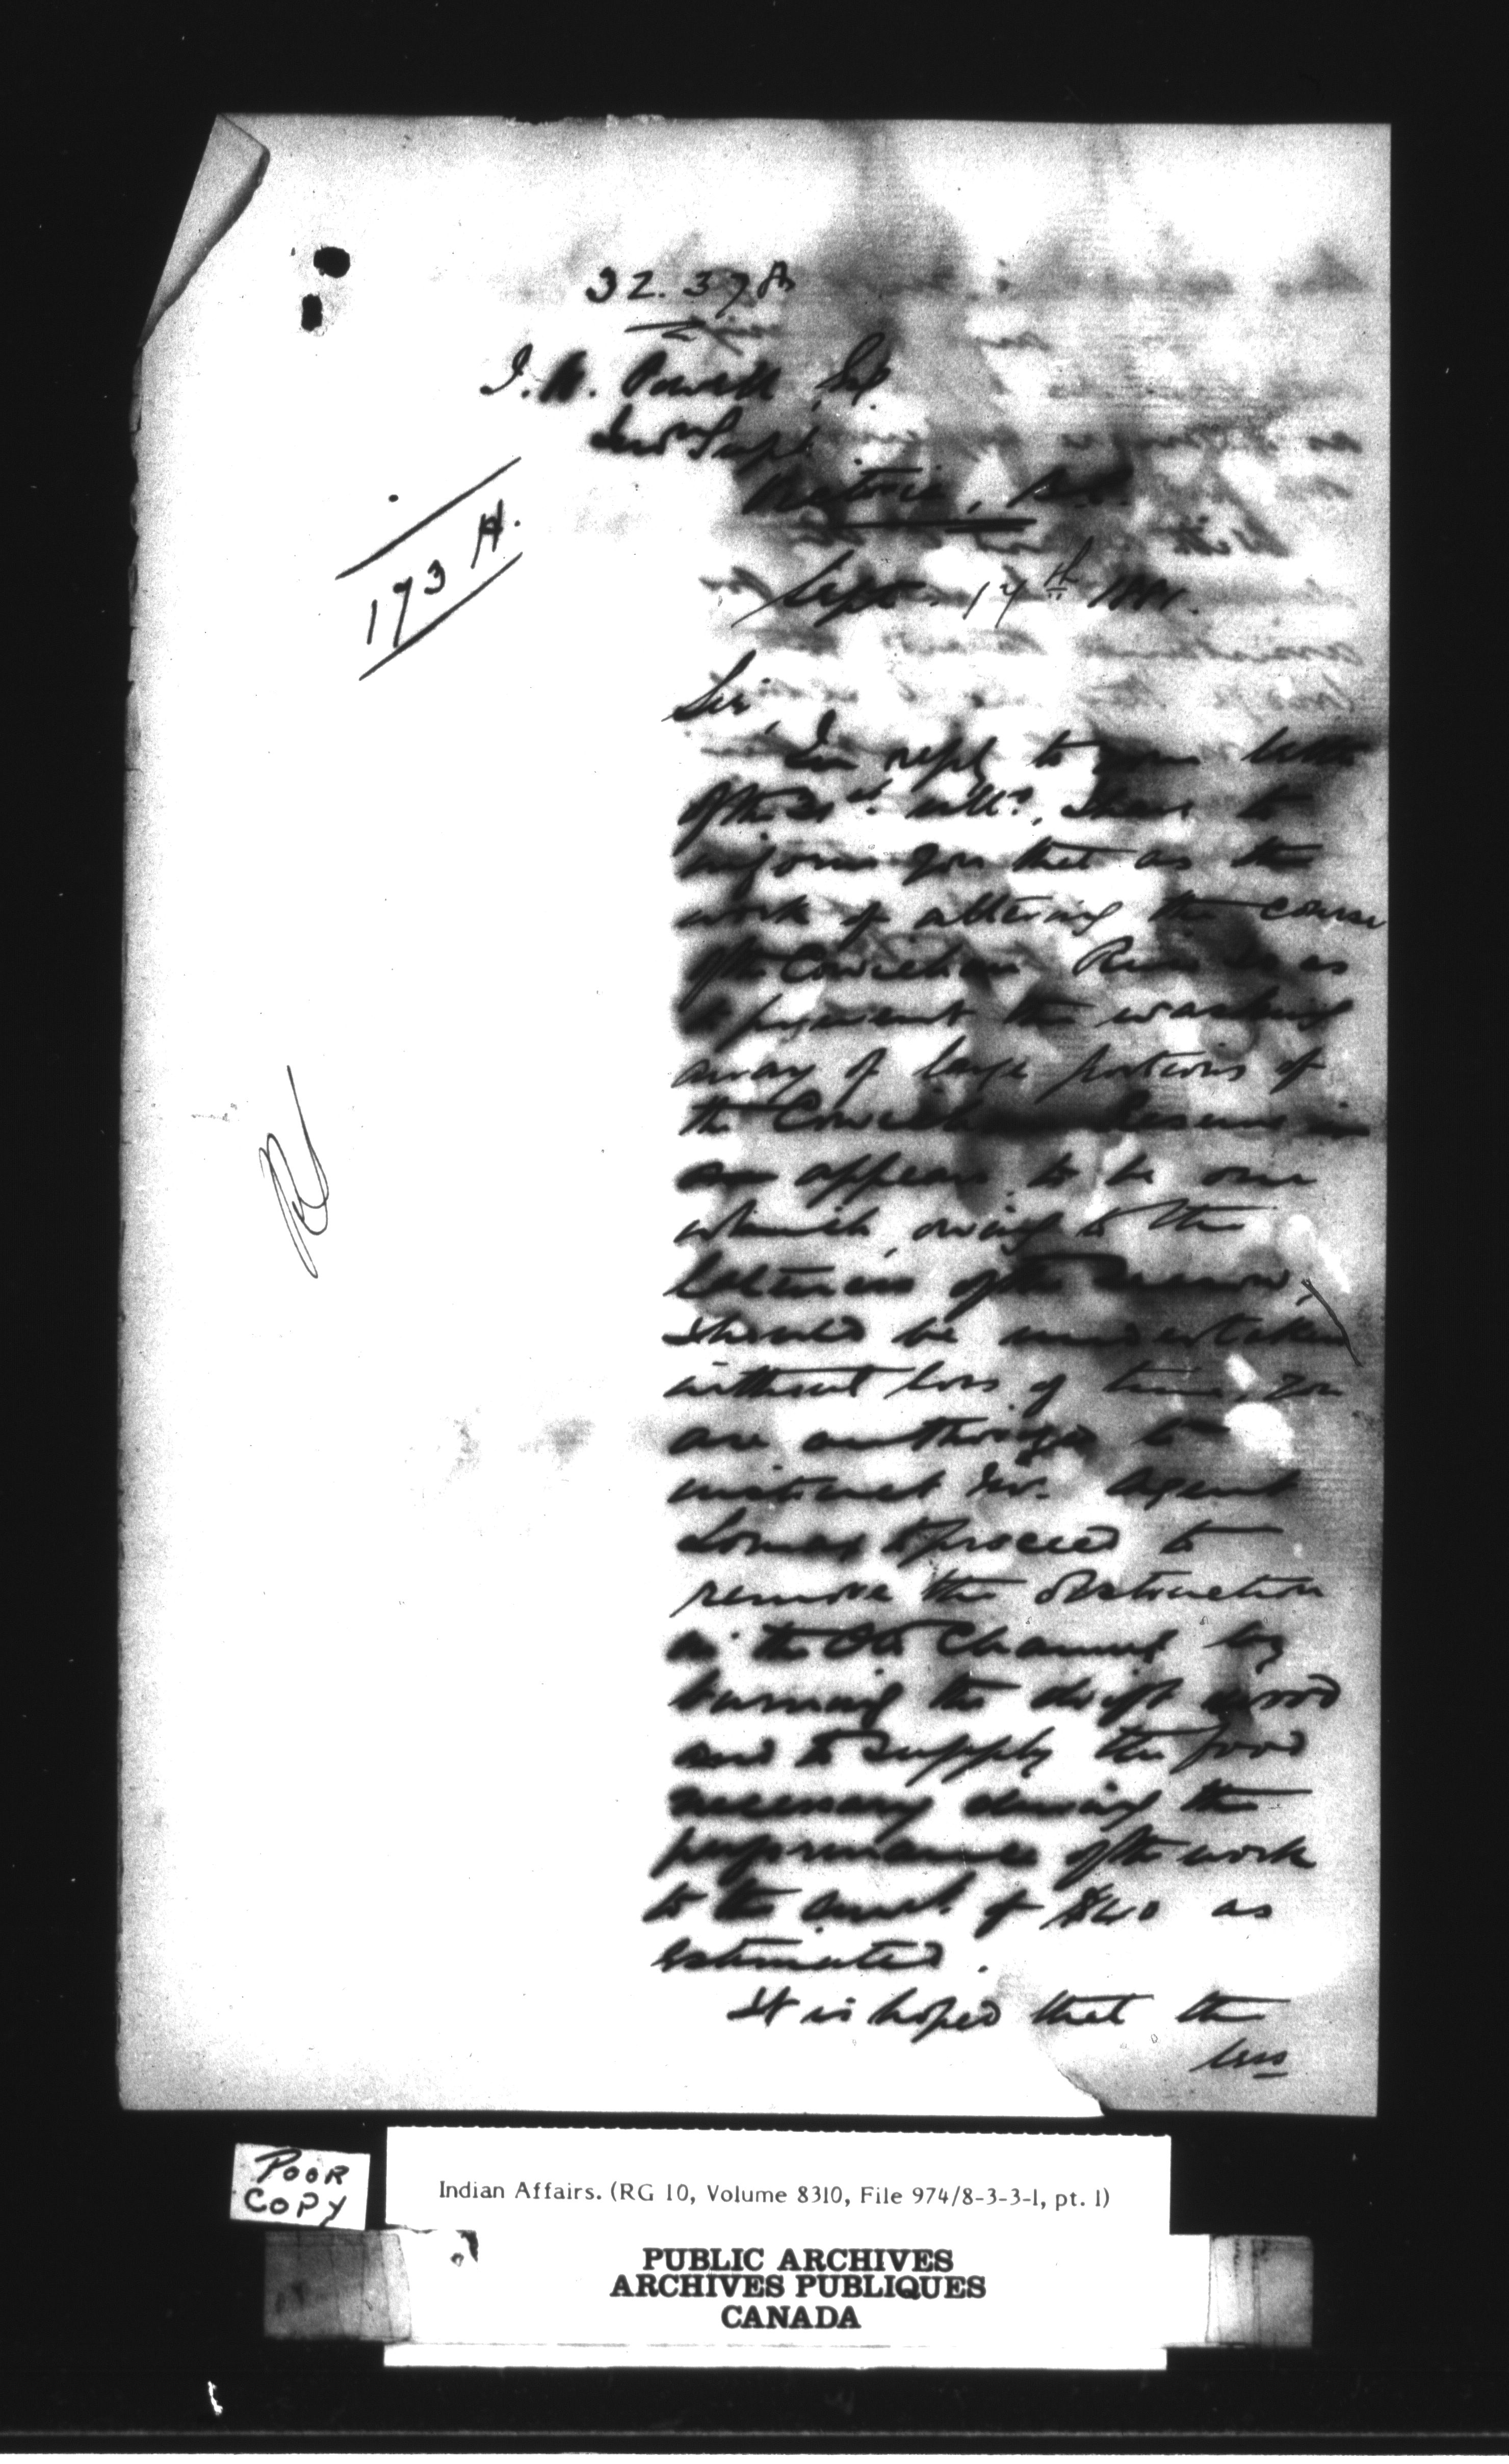 32.378
I. W. Powell, Esq.
Ind. Supt.
Victoria, B.C.
173 H.
Sept. 17th 1881.
Sir,
In reply to your letter
of the 21st. ulto., I have to
inform you that as the
work of altering the course
of the Cowichan River so as
to prevent the washing
away of large portions of
the Cowichan Reserve
appears to be one
which, owing to the
lateness of the season,
should be undertaken
without loss of time, you
are authorized to
instruct Mr. Agent
Lomas to proceed to
remove the obstruction
in the Old Channel by
burning the drift wood
and to supply the food
necessary during the
performance of the work
to the amt. of $40 as
estimated.
It is hoped that the
less
POOR
COPY
Indian Affairs. (RG 10, Volume 8310, File 974/8-3-3-1, pt. 1)
PUBLIC ARCHIVES
ARCHIVES PUBLIQUES
CANADA